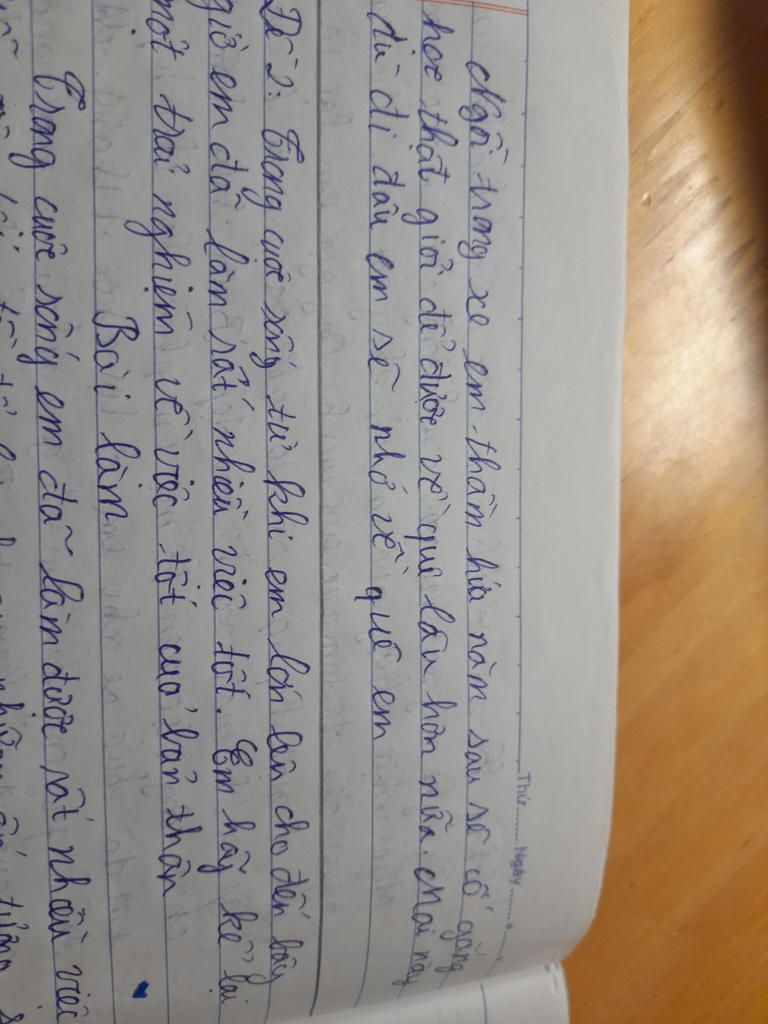 Thứ........ Ngày..........
Ngồi trong xe em thầm hứa năm sau sẽ cố gắng
học thật giỏi để được về quê lâu hơn nữa. Mai này
dù đi đâu em sẽ nhớ về quê em
Đề 2: Trong cuộc sống từ khi em lớn lên cho đến bây
giờ em đã làm rất nhiều việc tốt. Em hãy kể lại
một trải nghiệm về việc tốt của bản thân
Bài làm
Trong cuộc sống em đã làm được rất nhiều việc